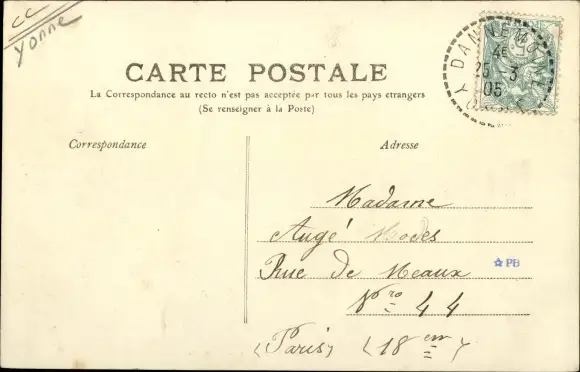 CC
Yonne
DANNEMOI
4E
25 3
05
CARTE POSTALE
La Correspondance au recto n'est pas acceptée par tous les pays etrangers
(Se renseigner à la Poste)
Correspondance
Adresse
Madame
Augé Modes
Rue de Meaux
PB
Nro 44
(Paris) (18em)